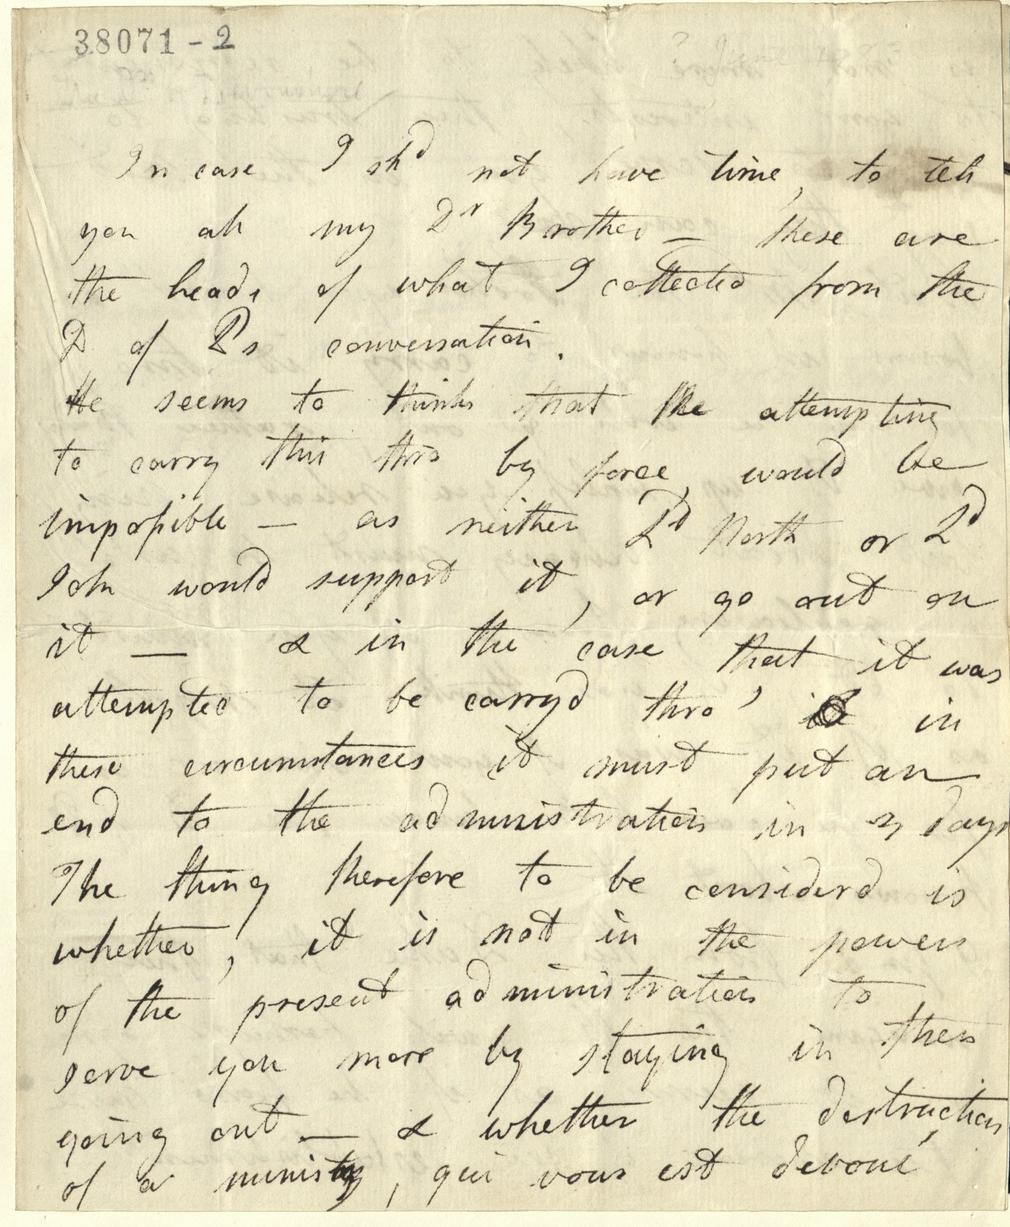 38071-2
In case I shd not have time, to tell
you all my Dr Brother — these are
the heads of what I collected from the
D of Ps conversation.
He seems to think that the attempting
to carry this thro by force, would be
impossible — as neither Ld North or Ld
John would support it, or go out on
it — & in the case that it was
attempted to be carryd thro' in
these circumstances it must put an
end to the administration in days
The thing therefore to be considerd is
whether, it is not in the powers
of the present administration to
serve you more by staying in then
going out — & whether the destruction
of a ministry, qui vous est devoué